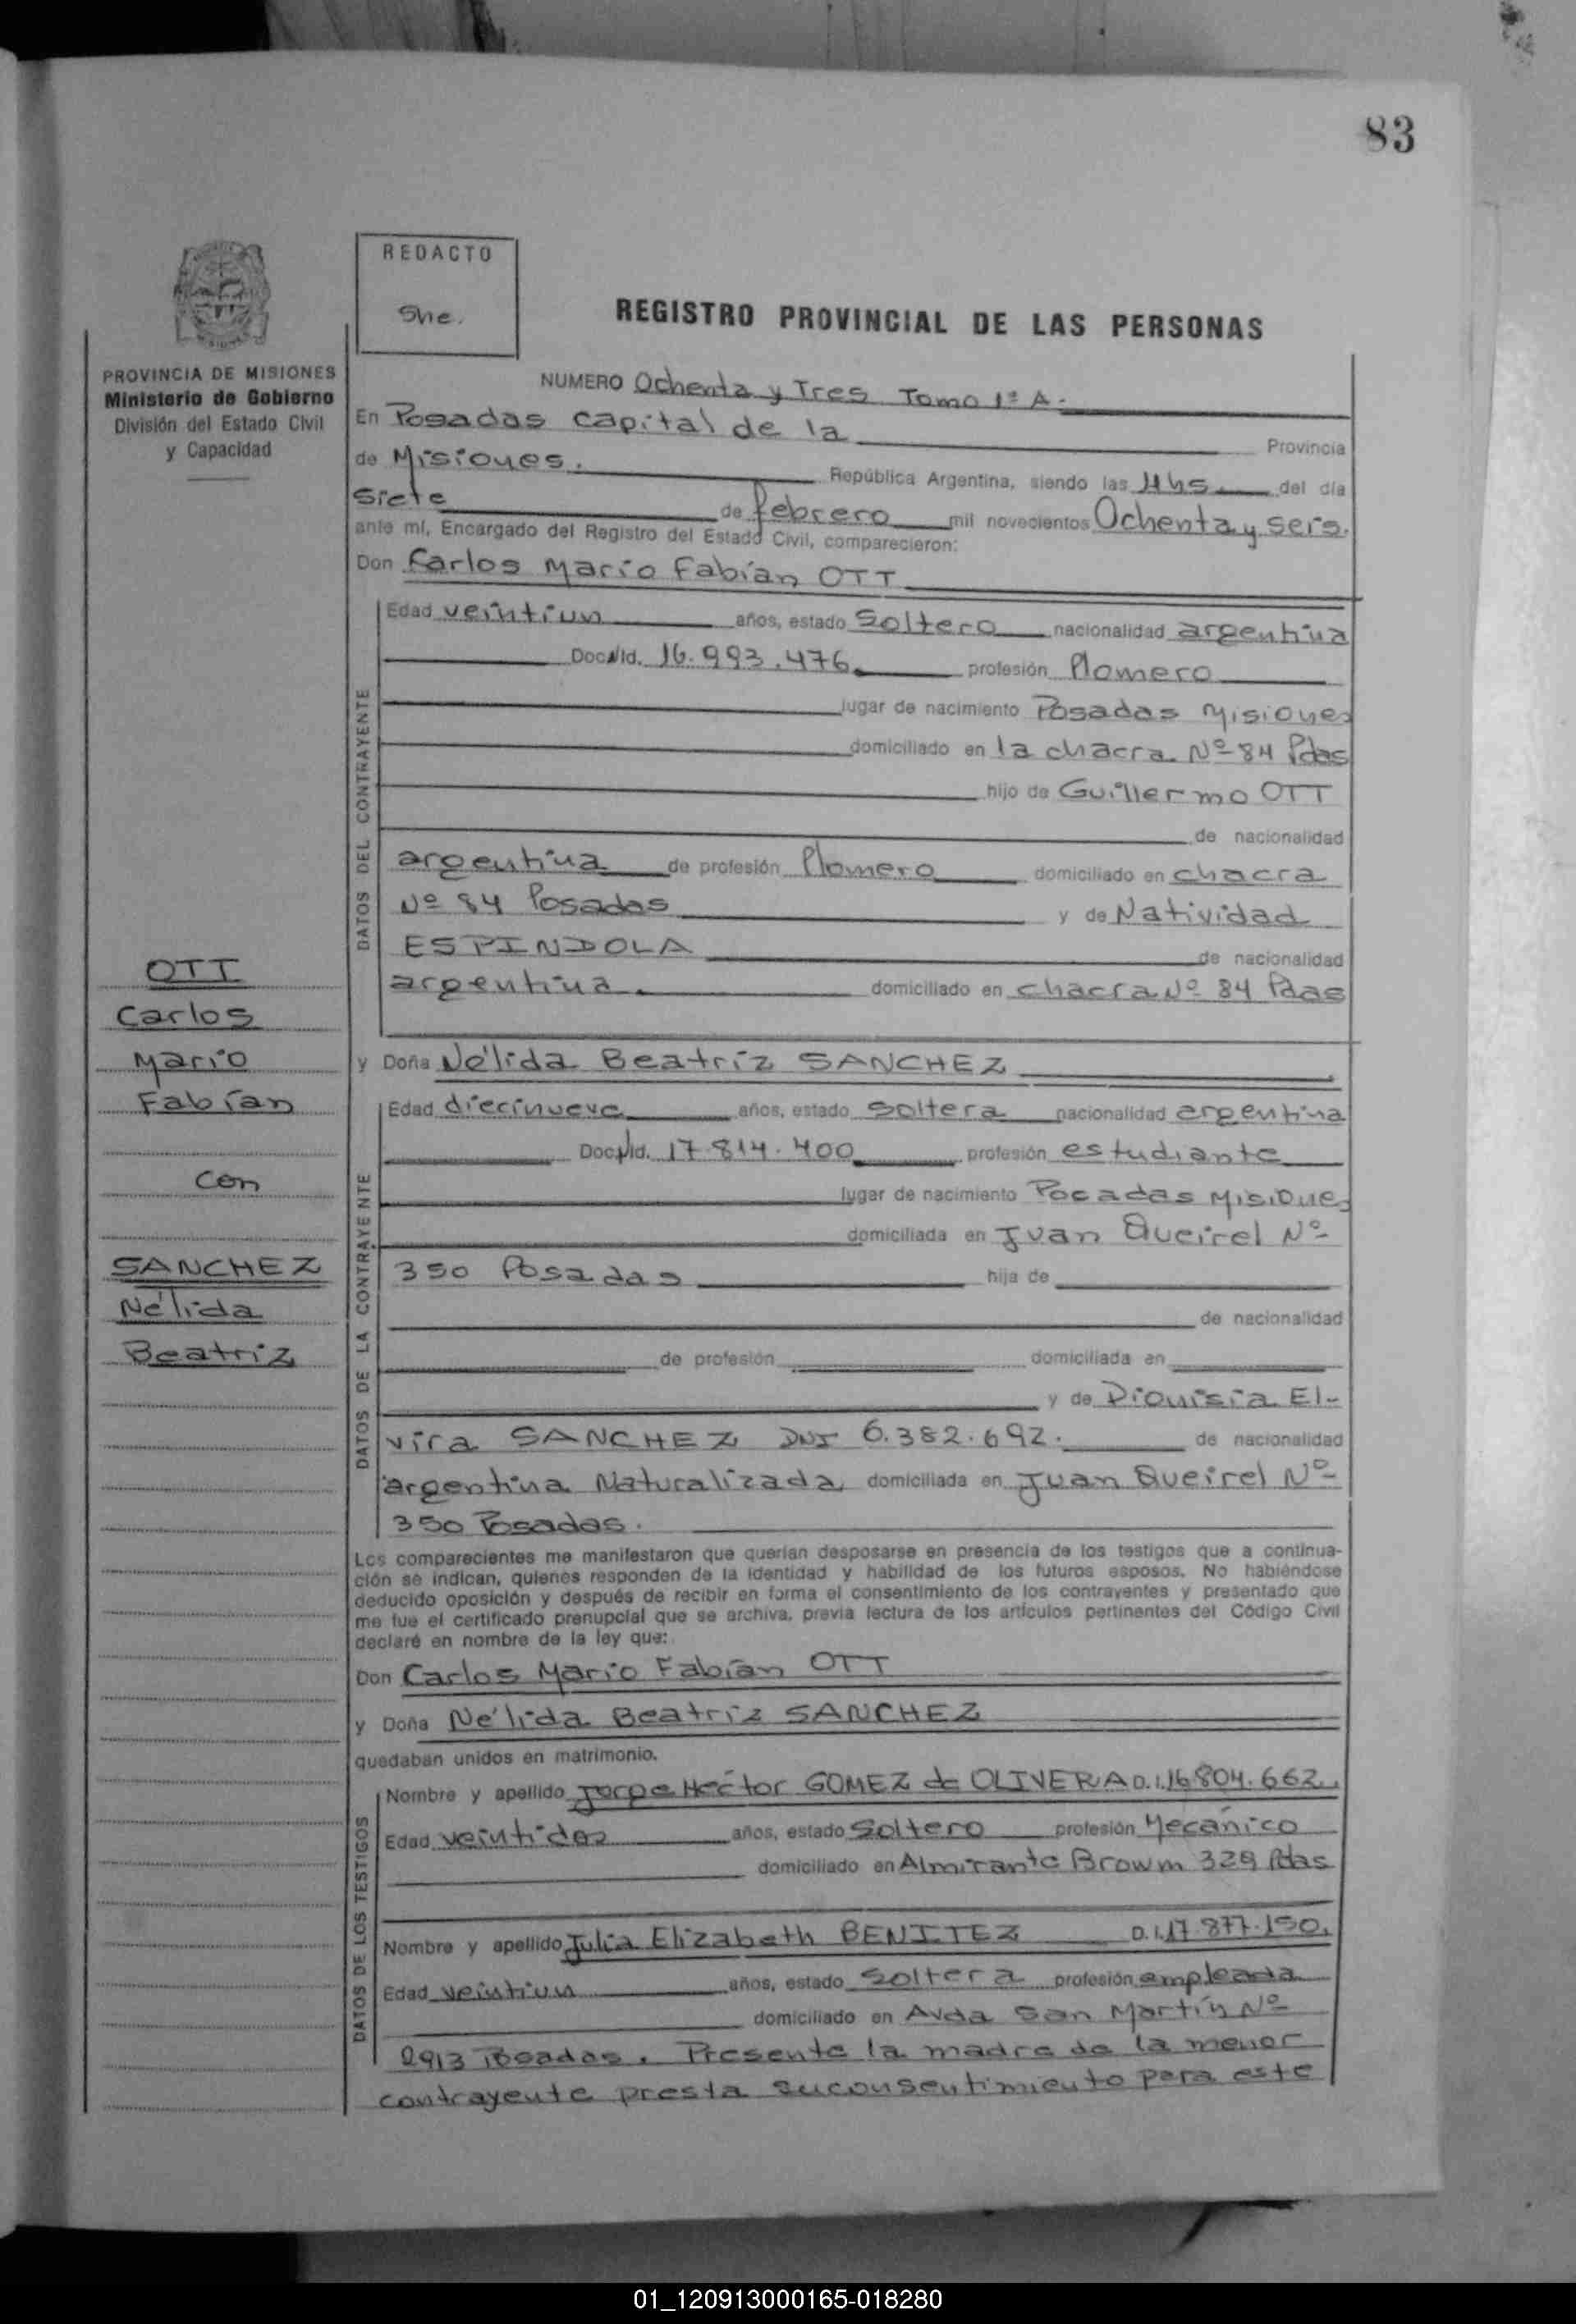 83
REDACTO
She.
REGISTRO PROVINCIAL DE LAS PERSONAS
PROVINCIA DE MISIONES
Ministerio de Gobierno
División del Estado Civil
y Capacidad
NUMERO Ochenta y Tres Tomo 1º A.
En Posadas capital de la Provincia
de Misiones. República Argentina, siendo las 11hs del día
siete de febrero mil novecientos Ochenta y seis.
ante mí, Encargado del Registro del Estado Civil, comparecieron:
Don Carlos Mario Fabían OTT
Edad veintiun años, estado Soltero nacionalidad argentina
Doc. Id. 16.993.476 profesión Plomero
lugar de nacimiento Posadas Misiones
domiciliado en la chacra Nº 84 Pdas
hijo de Guillermo OTT
de nacionalidad
argentina de profesión Plomero domiciliado en chacra
Nº 84 Posadas y de Natividad
ESPINDOLA de nacionalidad
argentina. domiciliado en chacra Nº 84 Pdas
DATOS DEL CONTRAYENTE
y Doña Nélida Beatríz SANCHEZ
Edad diecinueve años, estado soltera nacionalidad argentina
Doc. Id. 17.814.400 profesión estudiante
lugar de nacimiento Posadas Misiones
domiciliada en Juan Queirel Nº
350 Posadas hija de
de nacionalidad
de profesión domiciliada en
y de Dionisia El-
vira SANCHEZ DNI 6.382.692. de nacionalidad
argentina Naturalizada domiciliada en Juan Queirel Nº
350 Posadas.
DATOS DE LA CONTRAYENTE
OTT
Carlos
Mario
Fabían
con
SANCHEZ
Nélida
Beatríz
Los comparecientes me manifestaron que querían desposarse en presencia de los testigos que a continua-
ción se indican, quienes responden de la identidad y habilidad de los futuros esposos. No habiéndose
deducido oposición y después de recibir en forma el consentimiento de los contrayentes y presentado que
me fue el certificado prenupcial que se archiva, previa lectura de los artículos pertinentes del Código Civil
declaré en nombre de la ley que:
Don Carlos Mario Fabían OTT
y Doña Nélida Beatríz SANCHEZ
quedaban unidos en matrimonio.
Nombre y apellido Jorge Héctor GOMEZ de OLIVERA D.I.16.804.662.
Edad veintidos años, estado Soltero profesión Mecánico
domiciliado en Almirante Browm 329 Pdas
Nombre y apellido Julia Elizabeth BENITEZ D.I.17.877.150.
Edad veintiun años, estado soltera profesión empleada
domiciliado en Avda San Martín Nº
2913 Posadas. Presente la madre de la menor
contrayente presta su consentimiento para este
DATOS DE LOS TESTIGOS
01_120913000165-018280